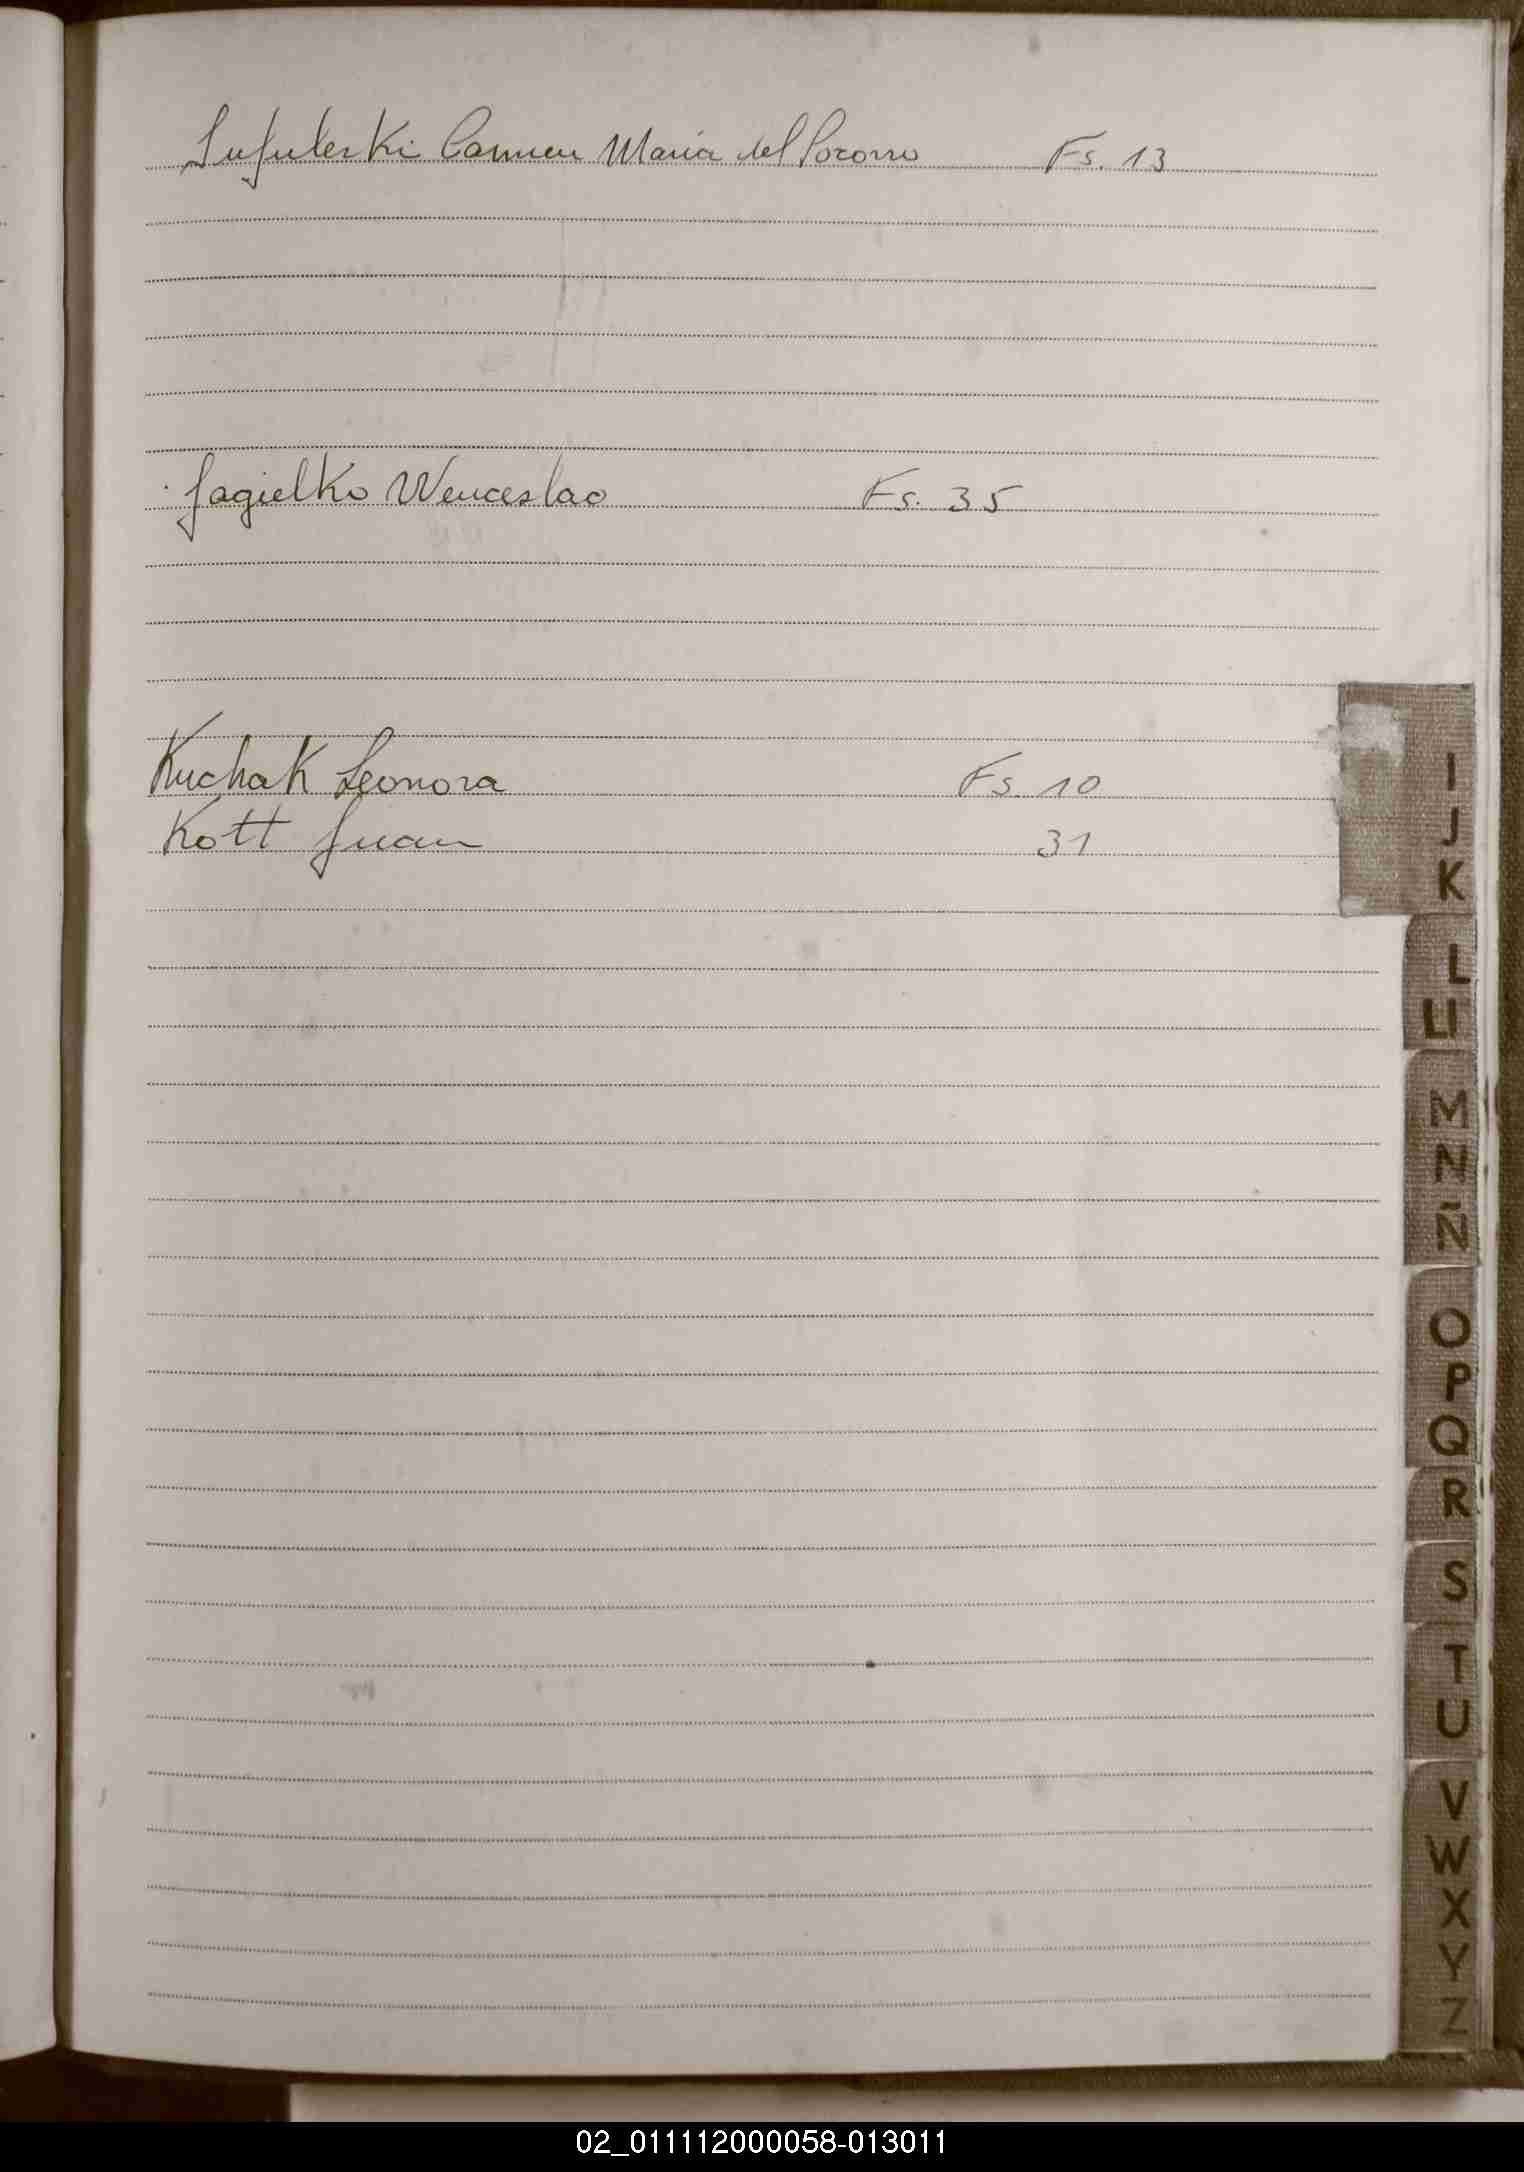 Carmen Maria del Socorro Fs. 13
Jagielko Wenceslao Fs. 35
Kuchak Leonora Fs. 10
Kott Juan 31
I
J
K
L
Ll
M
N
Ñ
O
P
Q
R
S
T
U
V
W
X
Y
Z
02_011112000058-013011